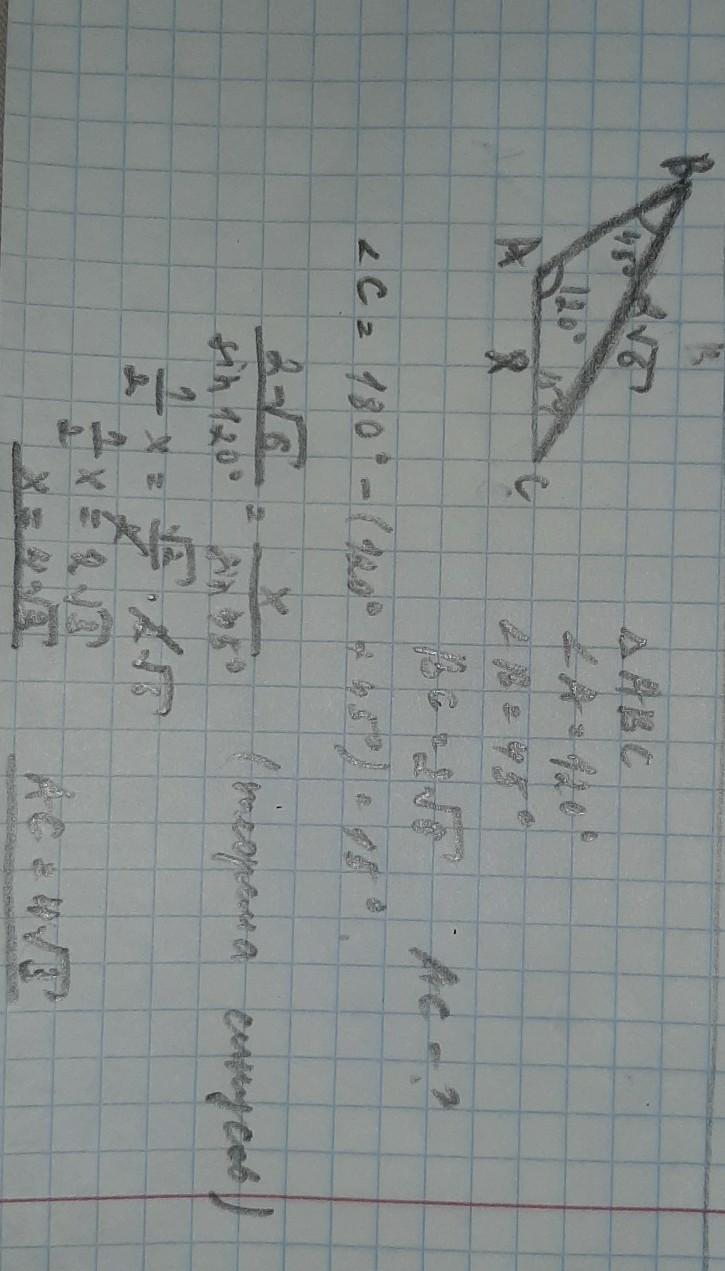 B
45°
2√6
A
120°
x
15°
C
△ ABC
∠A = 120°
∠B = 45°
BC = 2√6 AC - ?
∠C = 180° - (120° + 45°) = 15°
2√6 / sin 120° = x / sin 45° (теорема синусов)
1/2 x = √2/2 · 2√6
1/2 x = 2√3
x = 4√3
AC = 4√3